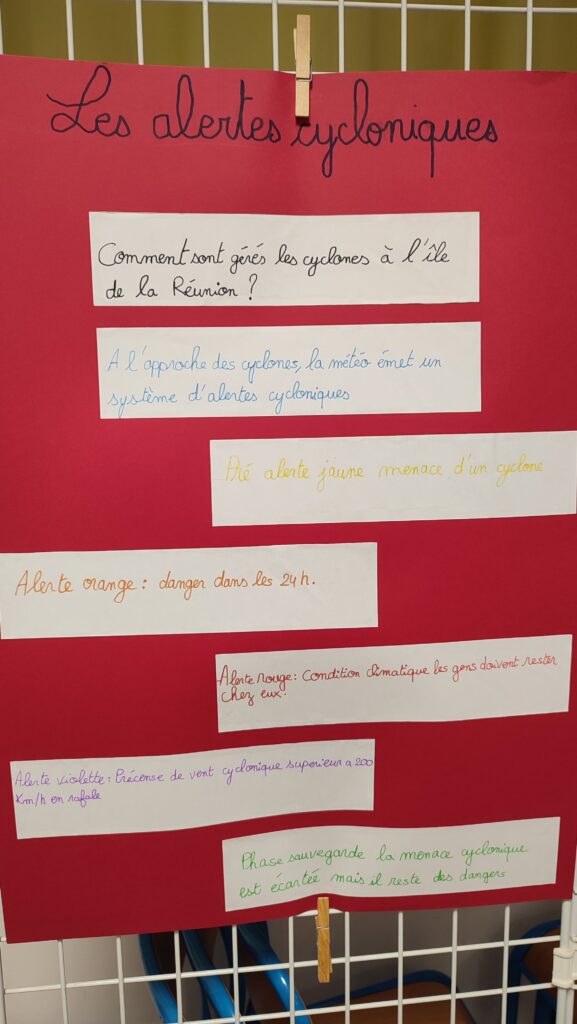 Les alertes cycloniques
Comment sont gérés les cyclones à l'île
de la Réunion ?
A l'approche des cyclones, la météo émet un
système d'alertes cycloniques
Pré alerte jaune menace d'un cyclone
Alerte orange : danger dans les 24 h.
Alerte rouge : Condition climatique les gens doivent rester
chez eux.
Alerte violette : Précense de vent cyclonique superieur a 200
Km/h en rafale
Phase sauvegarde la menace cyclonique
est écartée mais il reste des dangers